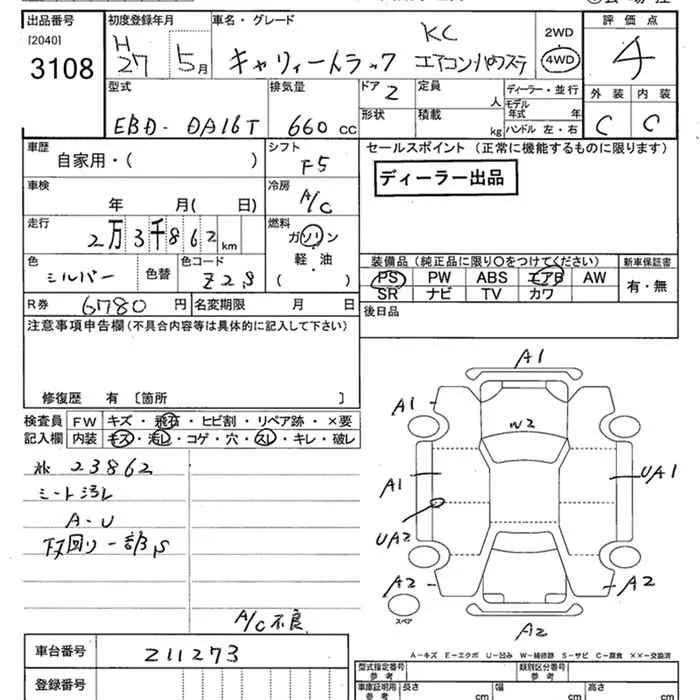 出品番号 初度登録年月 車名・グレード 評価点
[2040] H KC 2WD
3108 27 5月 キャリィートラック エアコン・パワステ 4WD 4
型式 排気量 ドア 2 定員 人 ディーラー・並行 外装 内装
モデル年式 年
EBD-DA16T 660cc 形状 積載 kg ハンドル 左・右 C C
車歴 シフト セールスポイント (正常に機能するものに限ります)
自家用・( ) F5
ディーラー出品
車検 冷房
年 月( 日) A/C
走行 燃料
2万3千862km ガソリン
軽・油
( )
色 色コード
シルバー 色替 Z2S
装備品(純正品に限り○をつけてください) 新車保証書
PS PW ABS エアB AW 有・無
SR ナビ TV カワ
R券 6780円 名変期限 月 日 後日品
注意事項申告欄(不具合内容等は具体的に記入して下さい)
修復歴 有 〔箇所 〕
検査員 FW キズ・飛石・ヒビ割・リペア跡・×要
記入欄 内装 キズ・汚レ・コゲ・穴・スレ・キレ・破レ
23862
シート汚レ
A-U
下回り一部S
A/C不良
A1
A1
W2
A1 UA1
UA2
A2 A2
スペア
A2
A-キズ E-エクボ U-凹み W-補修跡 S-サビ C-腐食 ××-交換済
車台番号 211273 型式指定番号 参考 類別区分番号 参考
登録番号 車庫証明用 参考 長さ cm 幅 cm 高さ cm